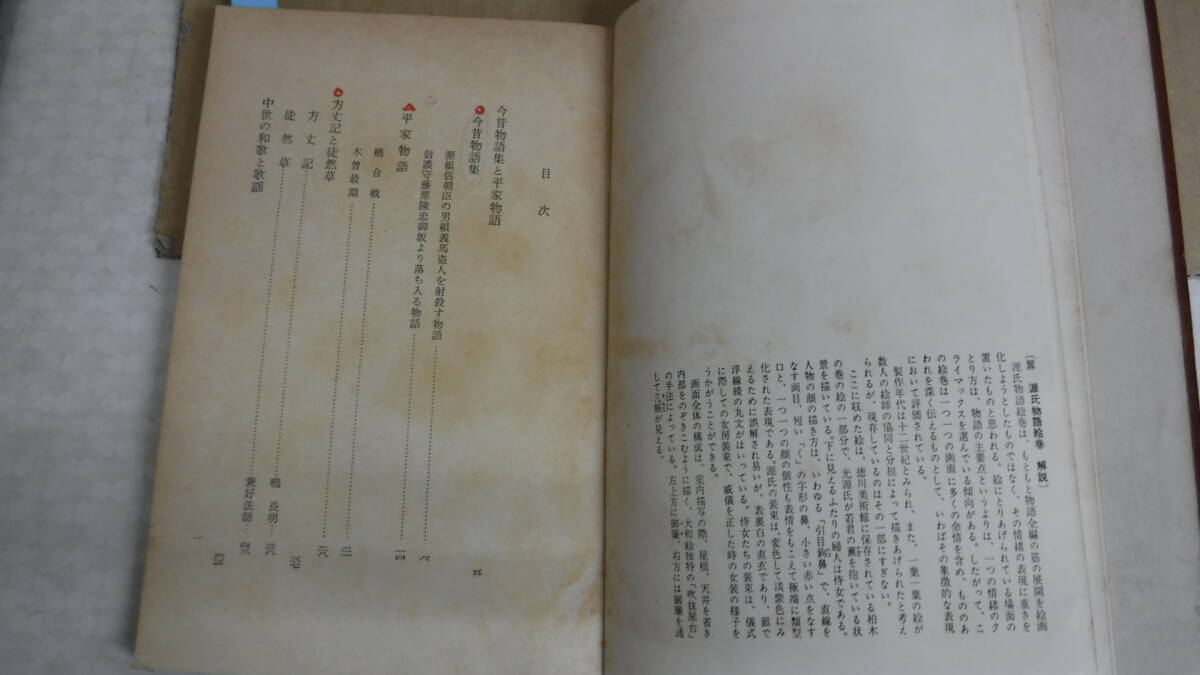 〔扉　源氏物語絵巻　解説〕
源氏物語絵巻は、もともと物語全編の筋の展開を絵画
化しようとしたものではなく、その情緒の表現に重きを
置いたものと思われる。絵にとりあげられている場面の
とり方は、物語の主要点というよりは、一つの情緒のク
ライマックスを選んでいる傾向がある。したがって、こ
の絵巻は一つ一つの画面に多くの余情を含め、もののあ
われを深く伝えるものとして、いわばその象徴的な表現
において評価されている。
製作年代は十二世紀とみられ、また、一葉一葉の絵が
数人の絵師の協同と分担によって描きあげられたと考え
られるが、現存しているのはその一部にすぎない。
ここに収めた絵は、徳川美術館に保存されている柏木
の巻の絵の一部分で、光源氏が若君の薫を抱いている状
景を描いている。下に見えるふたりの婦人は侍女である。
人物の顔の描き方は、いわゆる「引目鉤鼻」で、直線を
なす両目、短い「く」の字形の鼻、小さい赤い点をなす
口と、一つ一つの顔の個性も表情をもこえて極端に類型
化された表現である。源氏の装束は、変色して淡紫色にみ
えるために誤解され易いが、表裏白の直衣であり、銀で
浮線綾の丸文がはいっている。侍女たちの装束は、儀式
に際しての女房装束で、威儀を正した時の女装の様子を
うかがうことができる。
画面全体の構成は、室内描写の際、屋根、天井を省き
内部をのぞきこむように描く、大和絵独特の「吹抜屋台」
の手法によっている。左上方に御簾、右方には御簾を通
して几帳が見える。
目次
今昔物語集と平家物語
今昔物語集 五
源頼信朝臣の男頼義馬盗人を射殺す物語 六
信濃守藤原陳忠御坂より落ち入る物語
平家物語 一四
橋合戦
木曾最期 二一
方丈記と徒然草 二六
方丈記 鴨長明 二六
徒然草 兼好法師
中世の和歌と歌謡
一